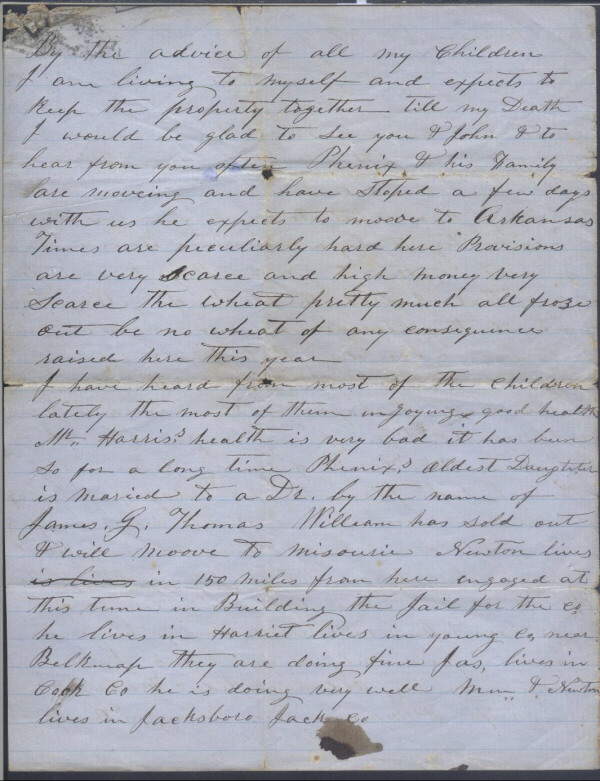 By the advice of all my Children
I am living to myself and expects to
Keep the property together till my Death
I would be glad to see you & John & to
hear from you often Phenix & his Family
are moveing and have stoped a few days
with us he expects to moove to Arkansas
Times are peculiarly hard here Provisions
are very Scarce and high money very
Scarce the wheat pretty much all froze
out be no wheat of any consequence
raised here this year
I have heard from most of the Children
lately the most of them injoying good health
Mr. Harris's health is very bad it has been
so for a long time Phenix's oldest Daughter
is maried to a Dr. by the name of
James. G. Thomas William has sold out
& will moove to misourie Newton lives
is lives in 150 miles from here engaged at
this time in Building the Jail for the Co,
he lives in Harriet lives in young Co, near
Belknap they are doing fine Jas, lives in
Cook Co he is doing very well & Newton
lives in Jacksboro Jack Co